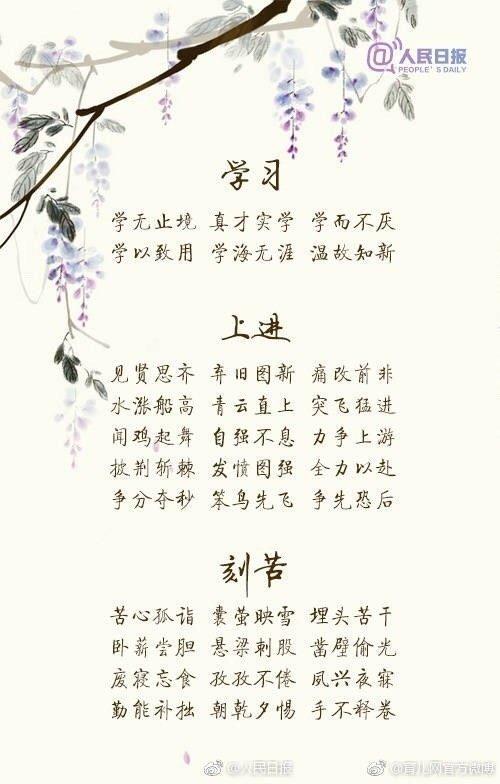 @人民日报
PEOPLE'S DAILY
学习
学无止境 真才实学 学而不厌
学以致用 学海无涯 温故知新
上进
见贤思齐 弃旧图新 痛改前非
水涨船高 青云直上 突飞猛进
闻鸡起舞 自强不息 力争上游
披荆斩棘 发愤图强 全力以赴
争分夺秒 笨鸟先飞 争先恐后
刻苦
苦心孤诣 囊萤映雪 埋头苦干
卧薪尝胆 悬梁刺股 凿壁偷光
废寝忘食 孜孜不倦 夙兴夜寐
勤能补拙 朝乾夕惕 手不释卷
@人民日报 @育儿网官方微博